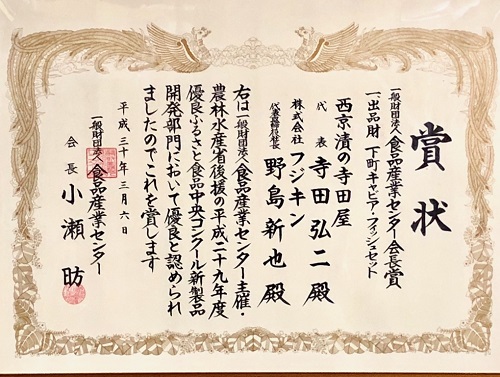 賞状
一般財団法人食品産業センター会長賞
一、出品財 下町キャビア・フィッシュセット
西京漬の寺田屋
代表 寺田弘二殿
株式会社フジキン
代表取締役社長 野島新也殿
右は一般財団法人食品産業センター主催・
農林水産省後援の平成二十九年度
優良ふるさと食品中央コンクール新製品
開発部門において優良と認められ
ましたのでこれを賞します
平成三十年三月六日
一般財団法人食品産業センター
会長 小瀬昉